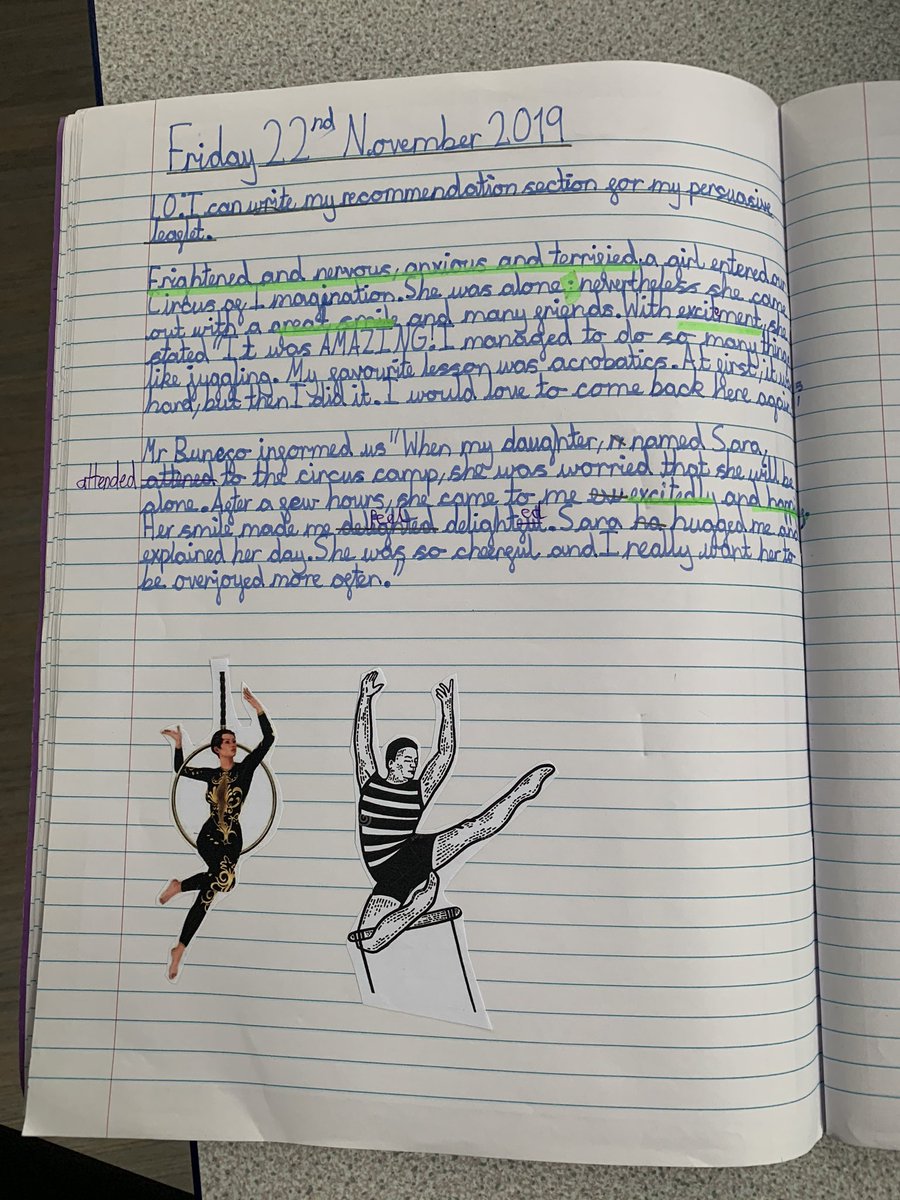 Friday 22nd November 2019
LO: I can write my recommendation section for my persuasive
leaflet.
Frightened and nervous, anxious and terrified, a girl entered our
Circus of Imagination. She was alone; nevertheless she came
out with a great smile and many friends. With excitement, she
stated "It was AMAZING! I managed to do so many things
like juggling. My favourite lesson was acrobatics. At first, it was
hard, but then I did it. I would love to come back here again
Mr Buneso informed us "When my daughter, named Sara,
attended attened to the circus camp, she was worried that she will be
alone. After a few hours, she came to me excitedly and
Her smile made me delighted delighted. Sara ha hugged me and
explained her day. She was so cheerful and I really want her to
be overjoyed more often."